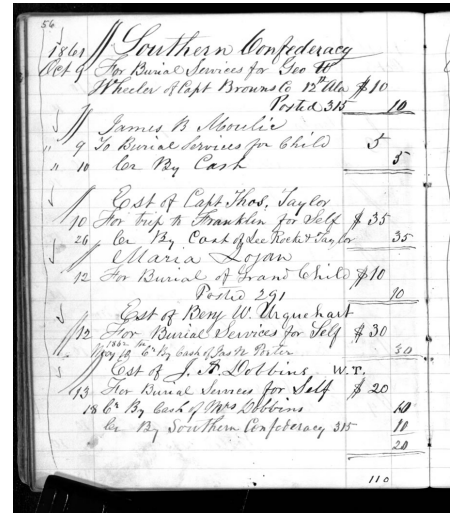 56
1861 // Southern Confederacy
Oct 9 For Burial Services for Geo W
Wheeler of Capt Browns Co 12th Ala $10
Posted 315 10
// James B Moulie
" 9 To Burial Services for Child 5
" 10 Cr By Cash 5
// Est of Capt Thos. Taylor
10 For trip to Franklin for Self $35
26 Cr By Cash of Lee Rocket Taylor 35
// Maria Logan
12 For Burial of Grand Child $10
Posted 291 10
// Est of Benj W. Urquehart
12 For Burial Services for Self $30
1862
Cr By Cash of Jas N Porter 30
// Est of J. A. Dobbins W.T.
13 For Burial Services for Self $20
18 Cr By Cash of Mrs Dobbins 10
Cr By Southern Confederacy 315 10
20
110